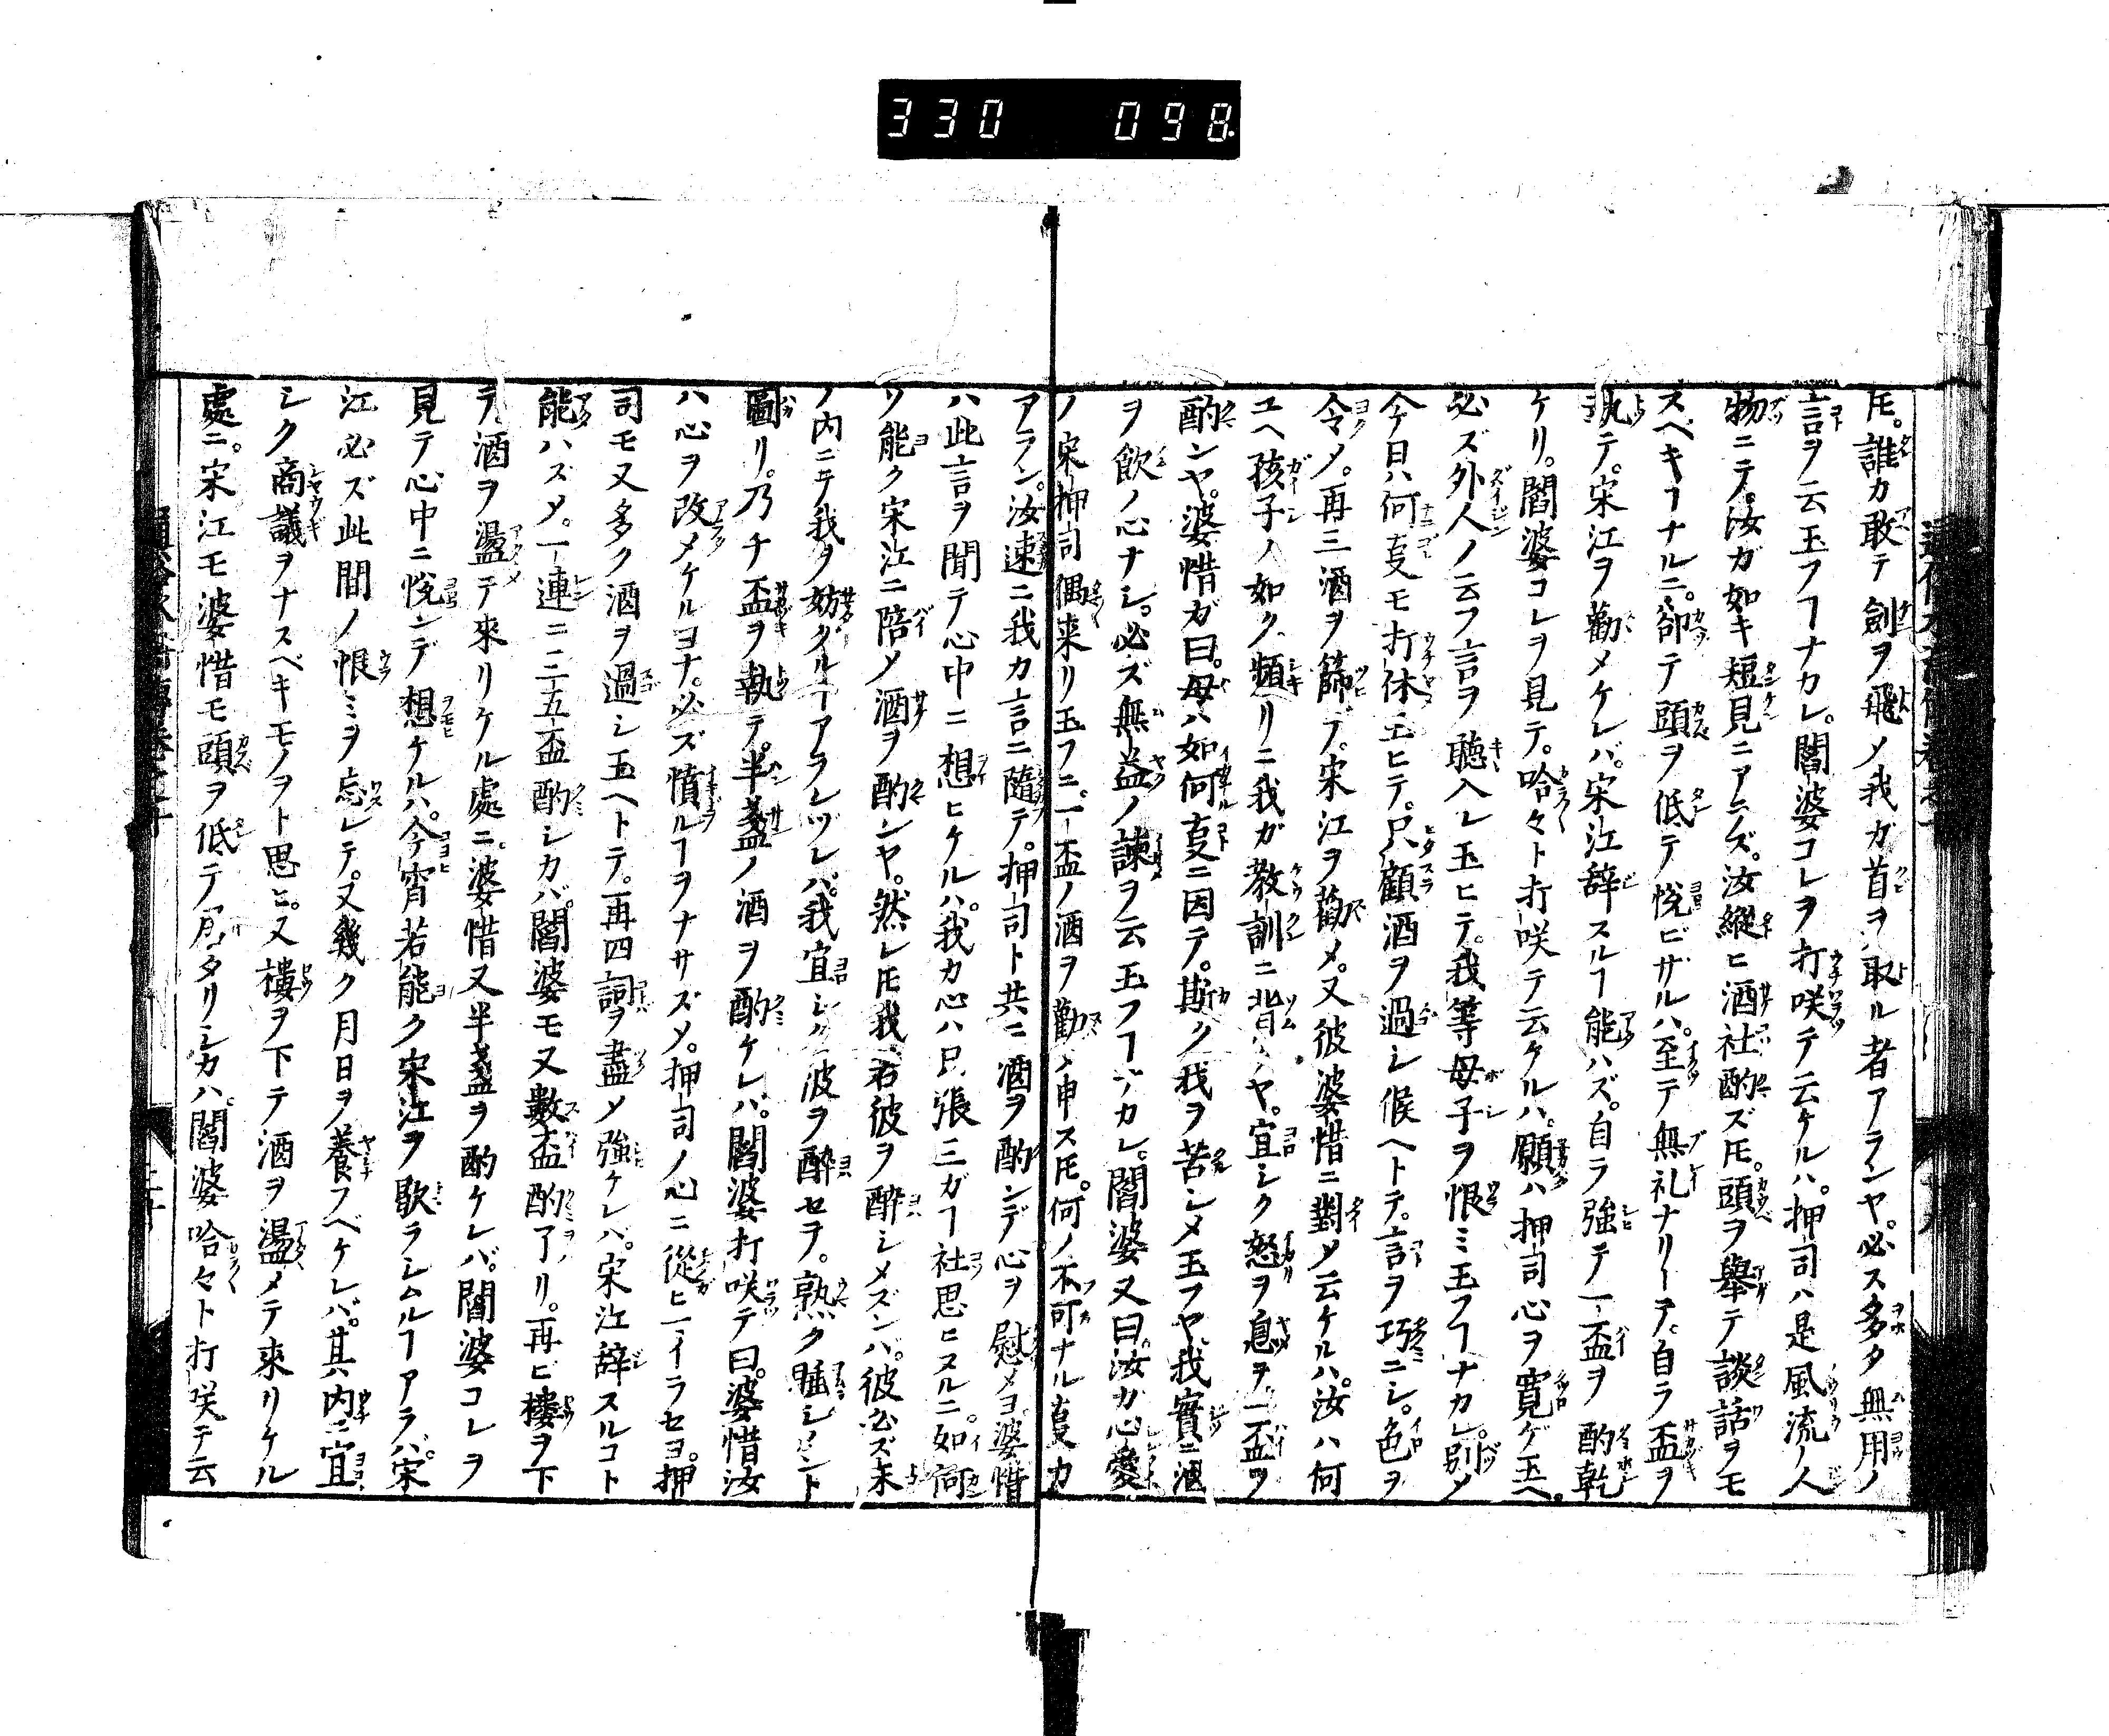 330 098
𪜈。誰カ敢テ劍ヲ飛メ我ガ首ヲ取ル者アランヤ。必ス多タ無用ノ
言ヲ云玉フヿナカレ。閻婆コレヲ打咲テ云ケルハ。押司ハ是風流ノ人
物ニテ。汝ガ如キ短見ニアラズ。汝縱ヒ酒社酌ズ𪜈。頭ヲ舉テ談話ヲモ
スベキヿナルニ。卻テ頭ヲ低テ悅ビザルハ。至テ無礼ナリーヲ。自ラ盃ヲ
执テ。宋江ヲ勸メケレバ。宋江辞スルヿ能ハズ。自ラ強テ一盃ヲ酌乾
ケリ。閻婆コレヲ見テ。哈々ト打咲テ云ケルハ。願ハ押司心ヲ寛ゲ玉ヘ。
必ズ外人ノ云フ言ヲ聴入レ玉ヒテ。我等母子ヲ恨ミ玉フヿナカレ。別メ
今日ハ何事モ打休玉ヒテ。只顧酒ヲ過シ候ヘトテ。言ヲ巧ニシ。色ヲ
令メ。再三酒ヲ篩テ。宋江ヲ勸メ。又彼婆惜ニ對メ云ケルハ。汝ハ何
ユヘ孩子ノ如ク。頻リニ我ガ教訓ニ背クヤ。宜シク怒ヲ息ヲ一盃ヲ
酌ンヤ。婆惜ガ曰。母ハ如何事ニ因テ。斯ク我ヲ苦シメ玉フヤ。我實ニ酒
ヲ飲ノ心ナシ。必ズ無益ノ諫ヲ云玉フヿナカレ。閻婆又曰。汝カ心愛
ノ宋押司偶来リ玉フニ。一盃ノ酒ヲ勸メ申ス𪜈。何ノ不可ナル事カ
アラン。汝速ニ我カ言ニ隨テ。押司ト共ニ酒ヲ酌ンデ心ヲ慰メヨ。婆惜
ハ此言ヲ聞テ心中ニ想ヒケルハ。我カ心ハ只張三ガヿ社思ヒヌルニ。如何
ソ能ク宋江ニ陪メ酒ヲ酌ンヤ。然レ𪜈我若彼ヲ醉シメズンバ。彼必ズ末
ノ内ニテ我ヲ妨グルヿアラレツレバ。我宜シク波ヲ醉セヲ。熟ク睡シメント
圖リ。乃チ盃ヲ執テ。半盞ノ酒ヲ酌ケレバ。閻婆打咲テ曰。婆惜汝
ハ心ヲ改メケルヨナ。必ズ憤ルヿヲナサズメ。押司ノ心ニ從ヒーイラセヨ。押
司モ又多ク酒ヲ過シ玉ヘトテ。再四詞ヲ盡メ強ケレバ。宋江辞スルコト
能ハズメ。一連ニ三五盃酌シカバ。閻婆モ又數盃酌了リ。再ビ樓ヲ下
テ酒ヲ盪テ來リケル處ニ。婆惜又半盞ヲ酌ケレバ。閻婆コレヲ
見テ心中ニ悅ンデ想ケルハ。今宵若能ク宋江ヲ歇ラシムルヿアラバ。宋
江必ズ此間ノ恨ミヲ忘レテ。又幾ク月日ヲ養フベケレバ。其内ニ宜
シク商議ヲナスベキモノヲト思ヒ。又樓ヲ下テ酒ヲ盪メテ來リケル
處ニ。宋江モ婆惜モ頭ヲ低テ居タリシカハ。閻婆哈々ト打咲テ云